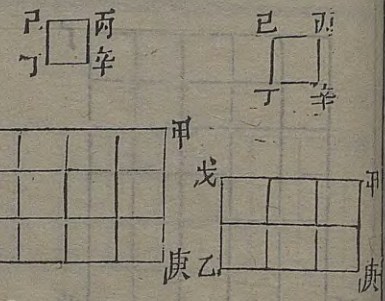 己 丙
丁 辛
己 丙
丁 辛
甲
庚
戊 甲
乙 庚